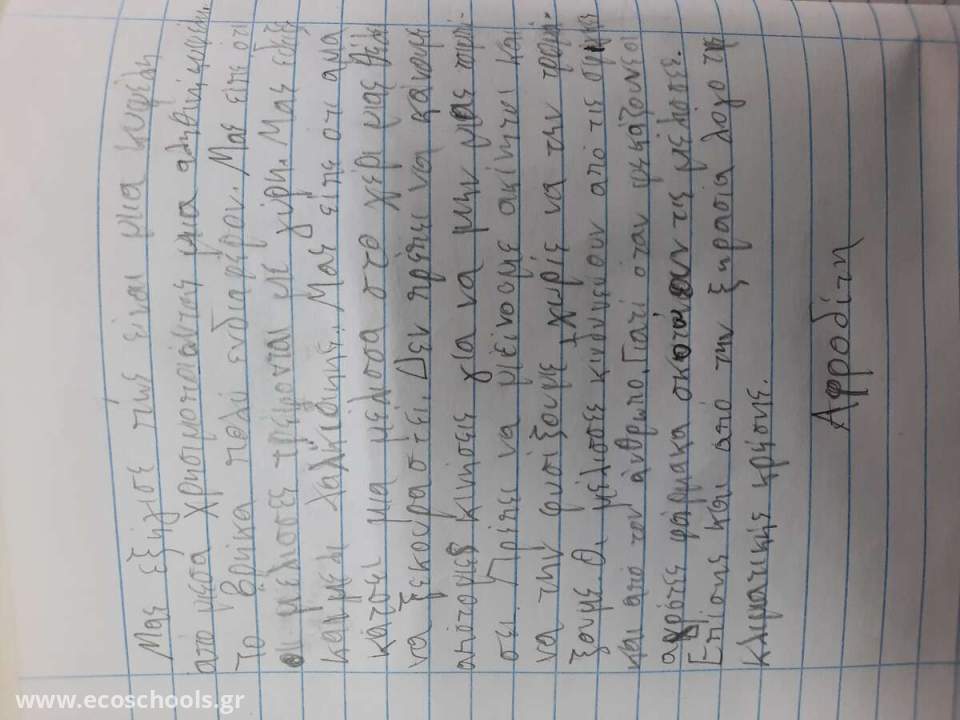 Μας εξήγισε πώς είναι μια κυψέλη
από μεσα χρησιμοποιόντας μια αληθινή κυψέλη.
Το βρήκα πολυ ενδιαφέρον. Μας είπε ότι
οι μελησσες τρέφονται με γύρη. Μας έδειξε
και μελι χαλκιδικής. Μας είπε οτι αμα
κατσει μια μέλισσα στο χέρι μας θέλει
να ξεκουραστεί. Δεν πρέπει να κάνουμε
απότομες κινήσεις για να μην μας τσιμπή-
σει. Πρέπει να μείνουμε ακίνητοι και
να την φυσίξουμε χωρίς να την τρομά-
ξουμε. Οι μέλισσες κινδυνεύουν από τις σφήκες
και από τον άνθρωπο. Γιατί όταν ψεκάζουνε οι
αγρότες φάρμακα σκοτώνουν τις μέλισσες.
Επίσης και από την ξηρασία λόγο της
κλιματικής κρίσης.
Αφροδίτη
www.ecoschools.gr